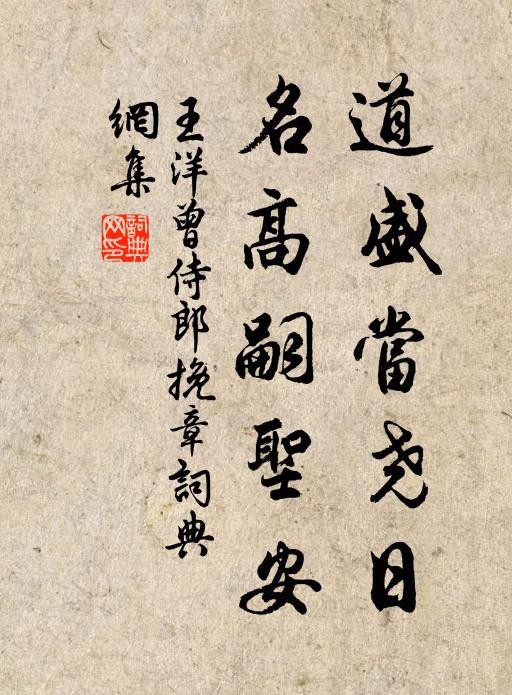 道盛當尧日
名高嗣聖安
王洋曾侍郎挽章詞典
網集
詞典
网印